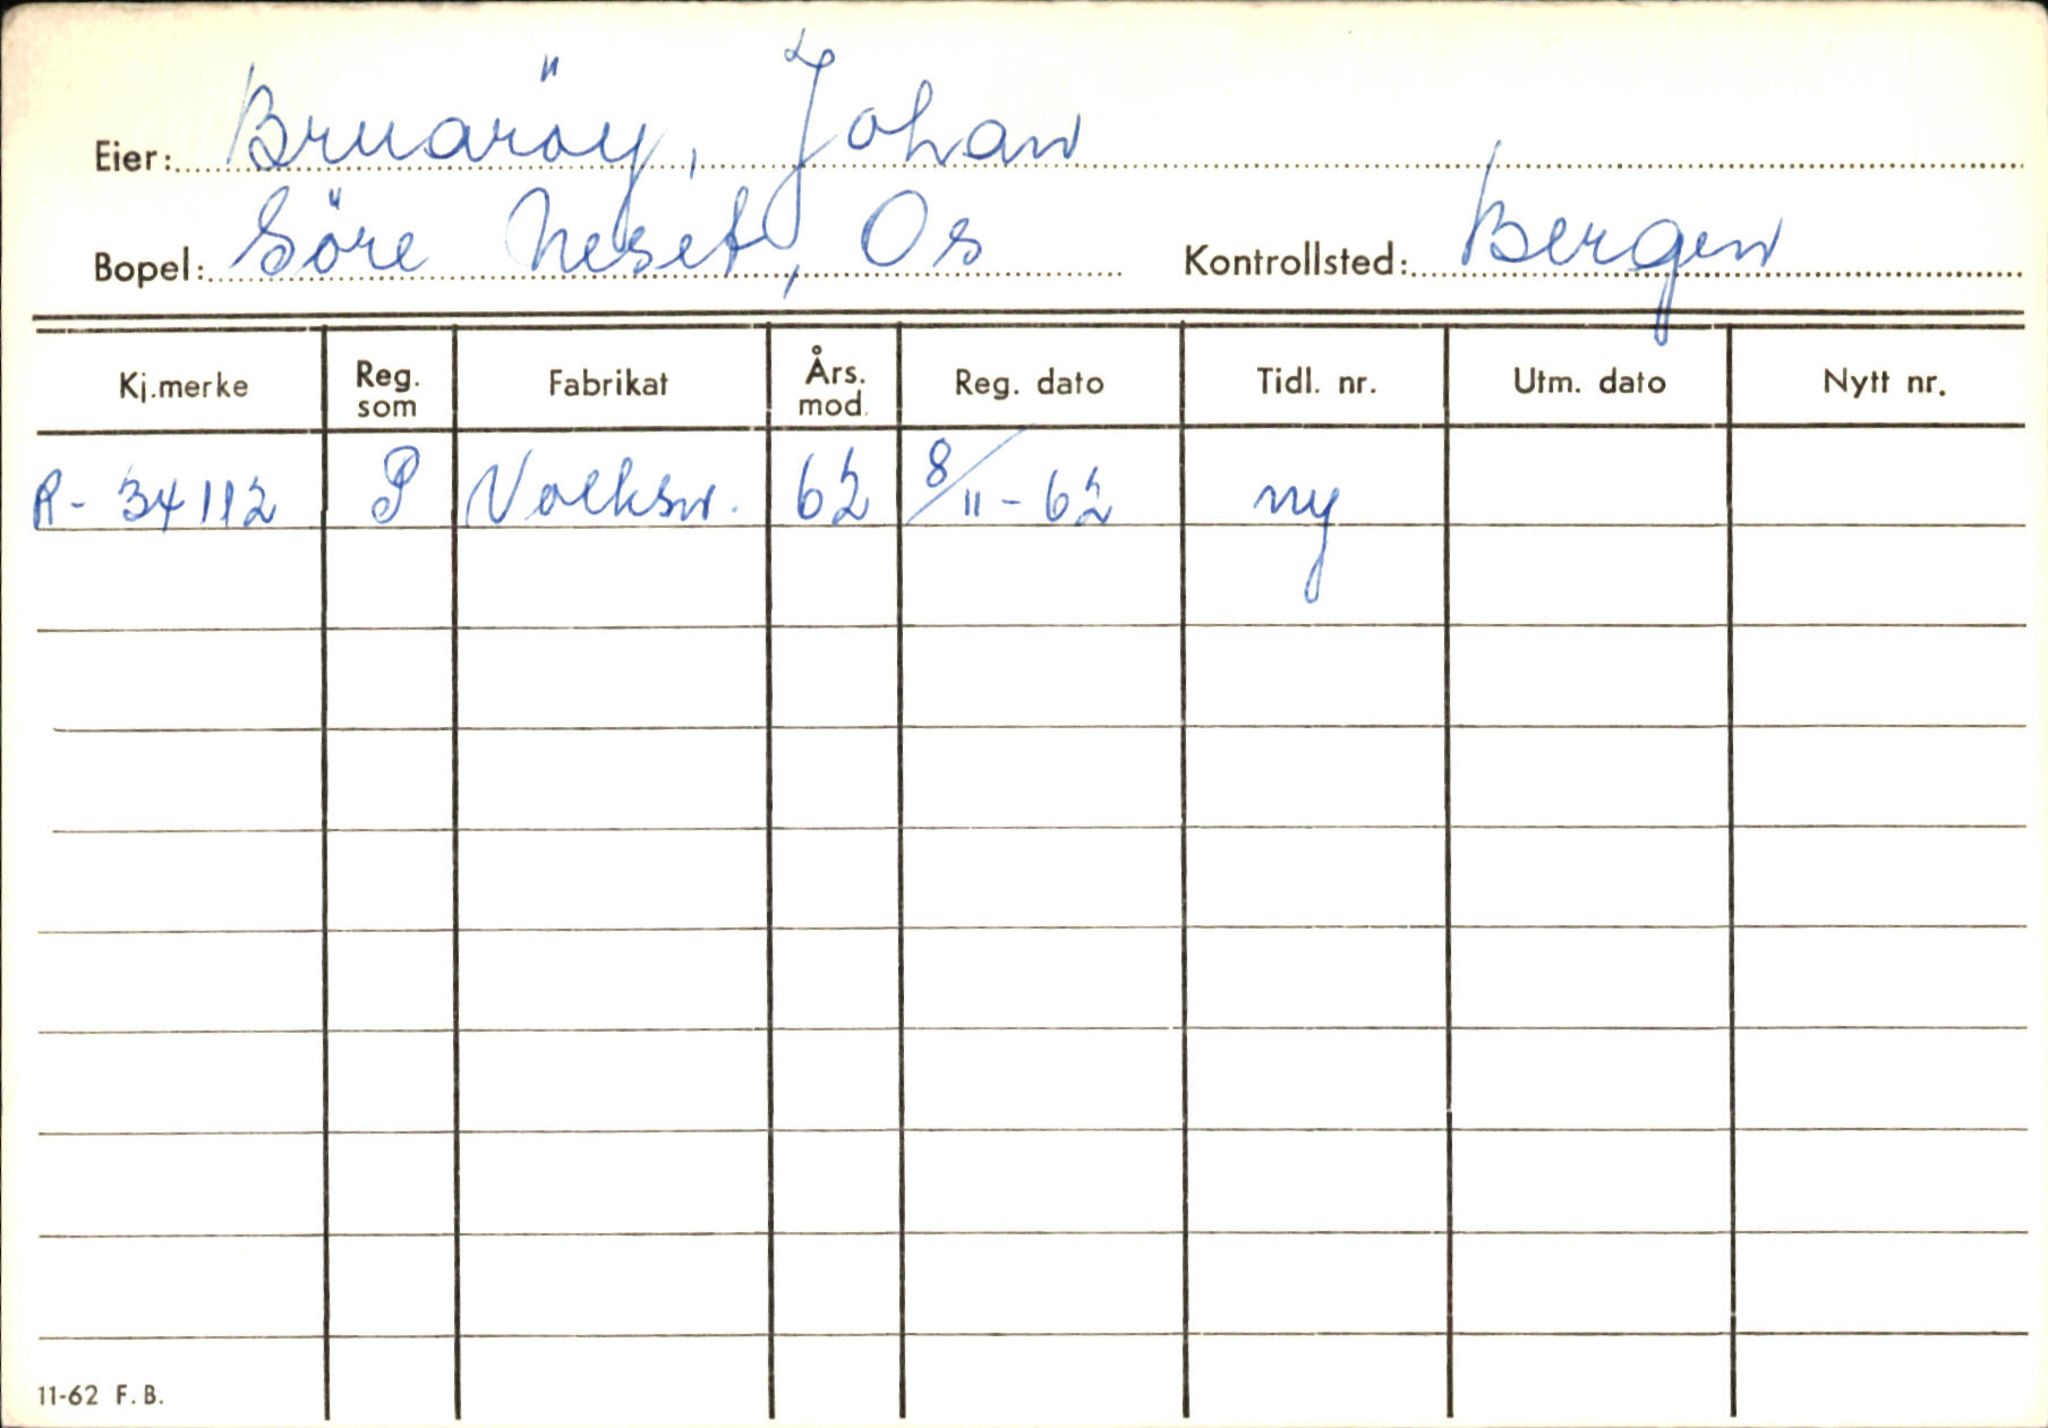 Eier: Bruaröy, Johan
Bopel: Söre Neset, Os Kontrollsted: Bergen
Kj.merke Reg. som Fabrikat Års. mod. Reg. dato Tidl. nr. Utm. dato Nytt nr.
R-34112 P Volksw. 62 8/11-62 ny
11-62 F.B.